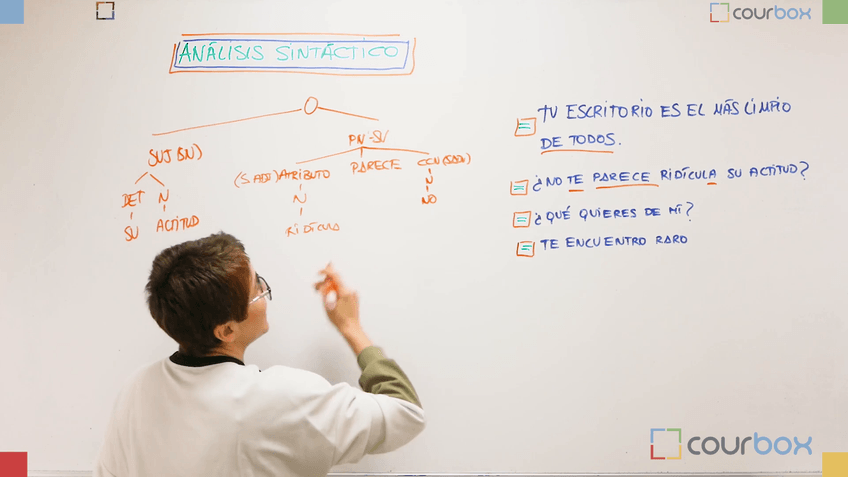 courbox
ANÁLISIS SINTÁCTICO
O
SUJ (SN)
PN-SV
DET N
(S ADJ) ATRIBUTO PARECE CCN (SADV)
SU ACTITUD
N
N
RIDÍCULA
NO
TU ESCRITORIO ES EL MÁS LIMPIO
DE TODOS.
¿NO TE PARECE RIDÍCULA SU ACTITUD?
¿QUÉ QUIERES DE MÍ?
TE ENCUENTRO RARO
courbox